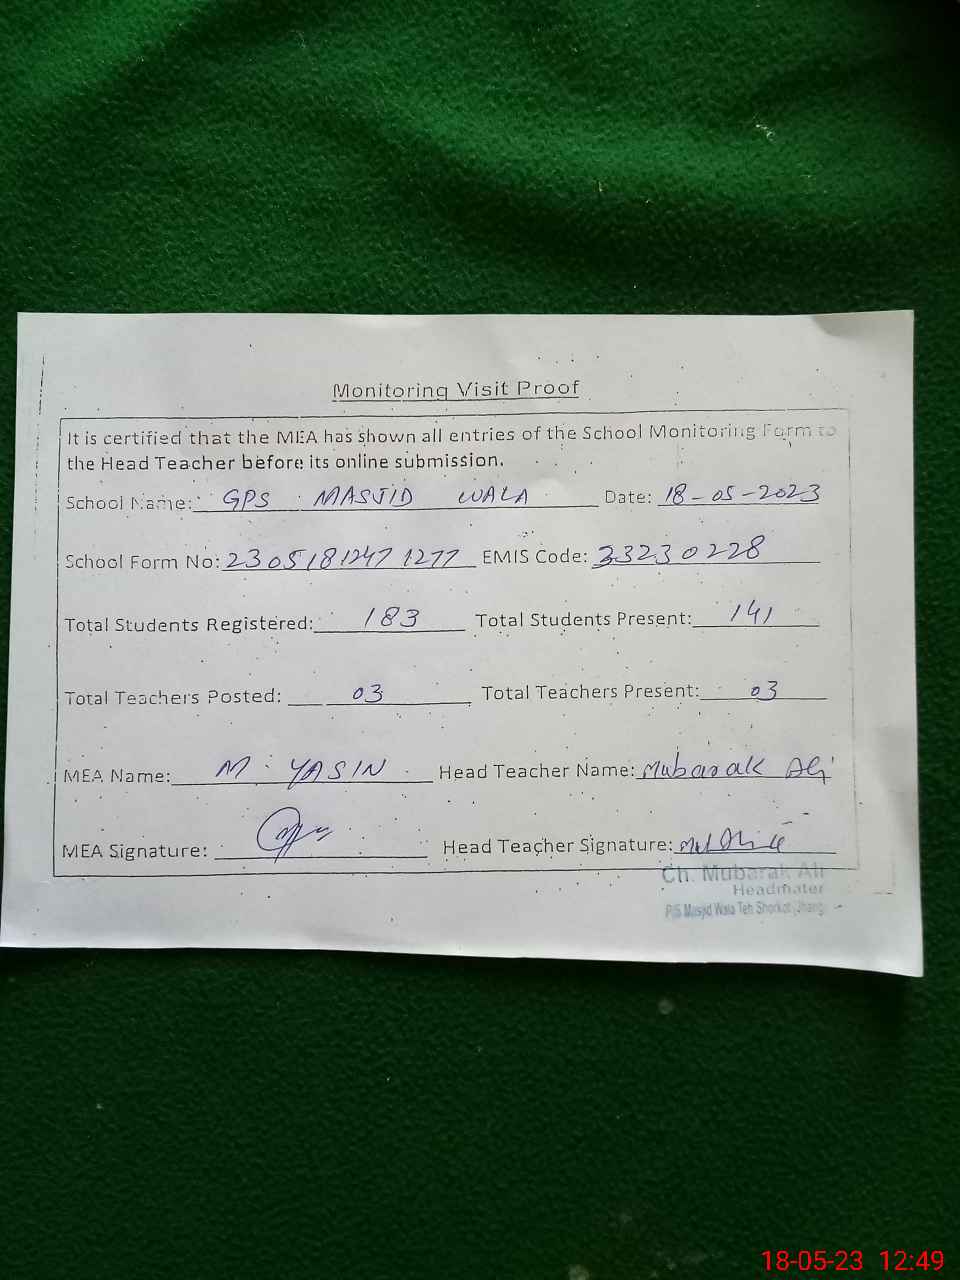 Monitoring Visit Proof
It is certified that the MEA has shown all entries of the School Monitoring Form to
the Head Teacher before its online submission.
School Name: GPS MASJID WALA Date: 18-05-2023
School Form No: 2305181247 1277 EMIS Code: 33230228
Total Students Registered: 183 Total Students Present: 141
Total Teachers Posted: 03 Total Teachers Present: 03
MEA Name: M. YASIN Head Teacher Name: Mubarak Ali
MEA Signature: Head Teacher Signature:
Ch. Mubarak Ali
Headmater
P/S Masjid Wala Teh Shorkot Jhang
18-05-23 12:49